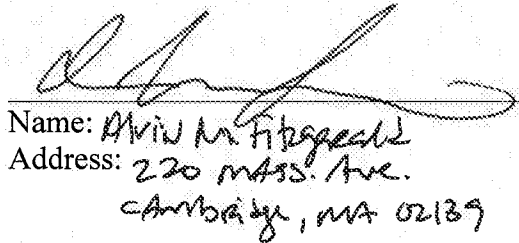 Name: Alvin M. Fitzgerald
Address: 220 MASS. Ave.
CAmbridge, MA 02139